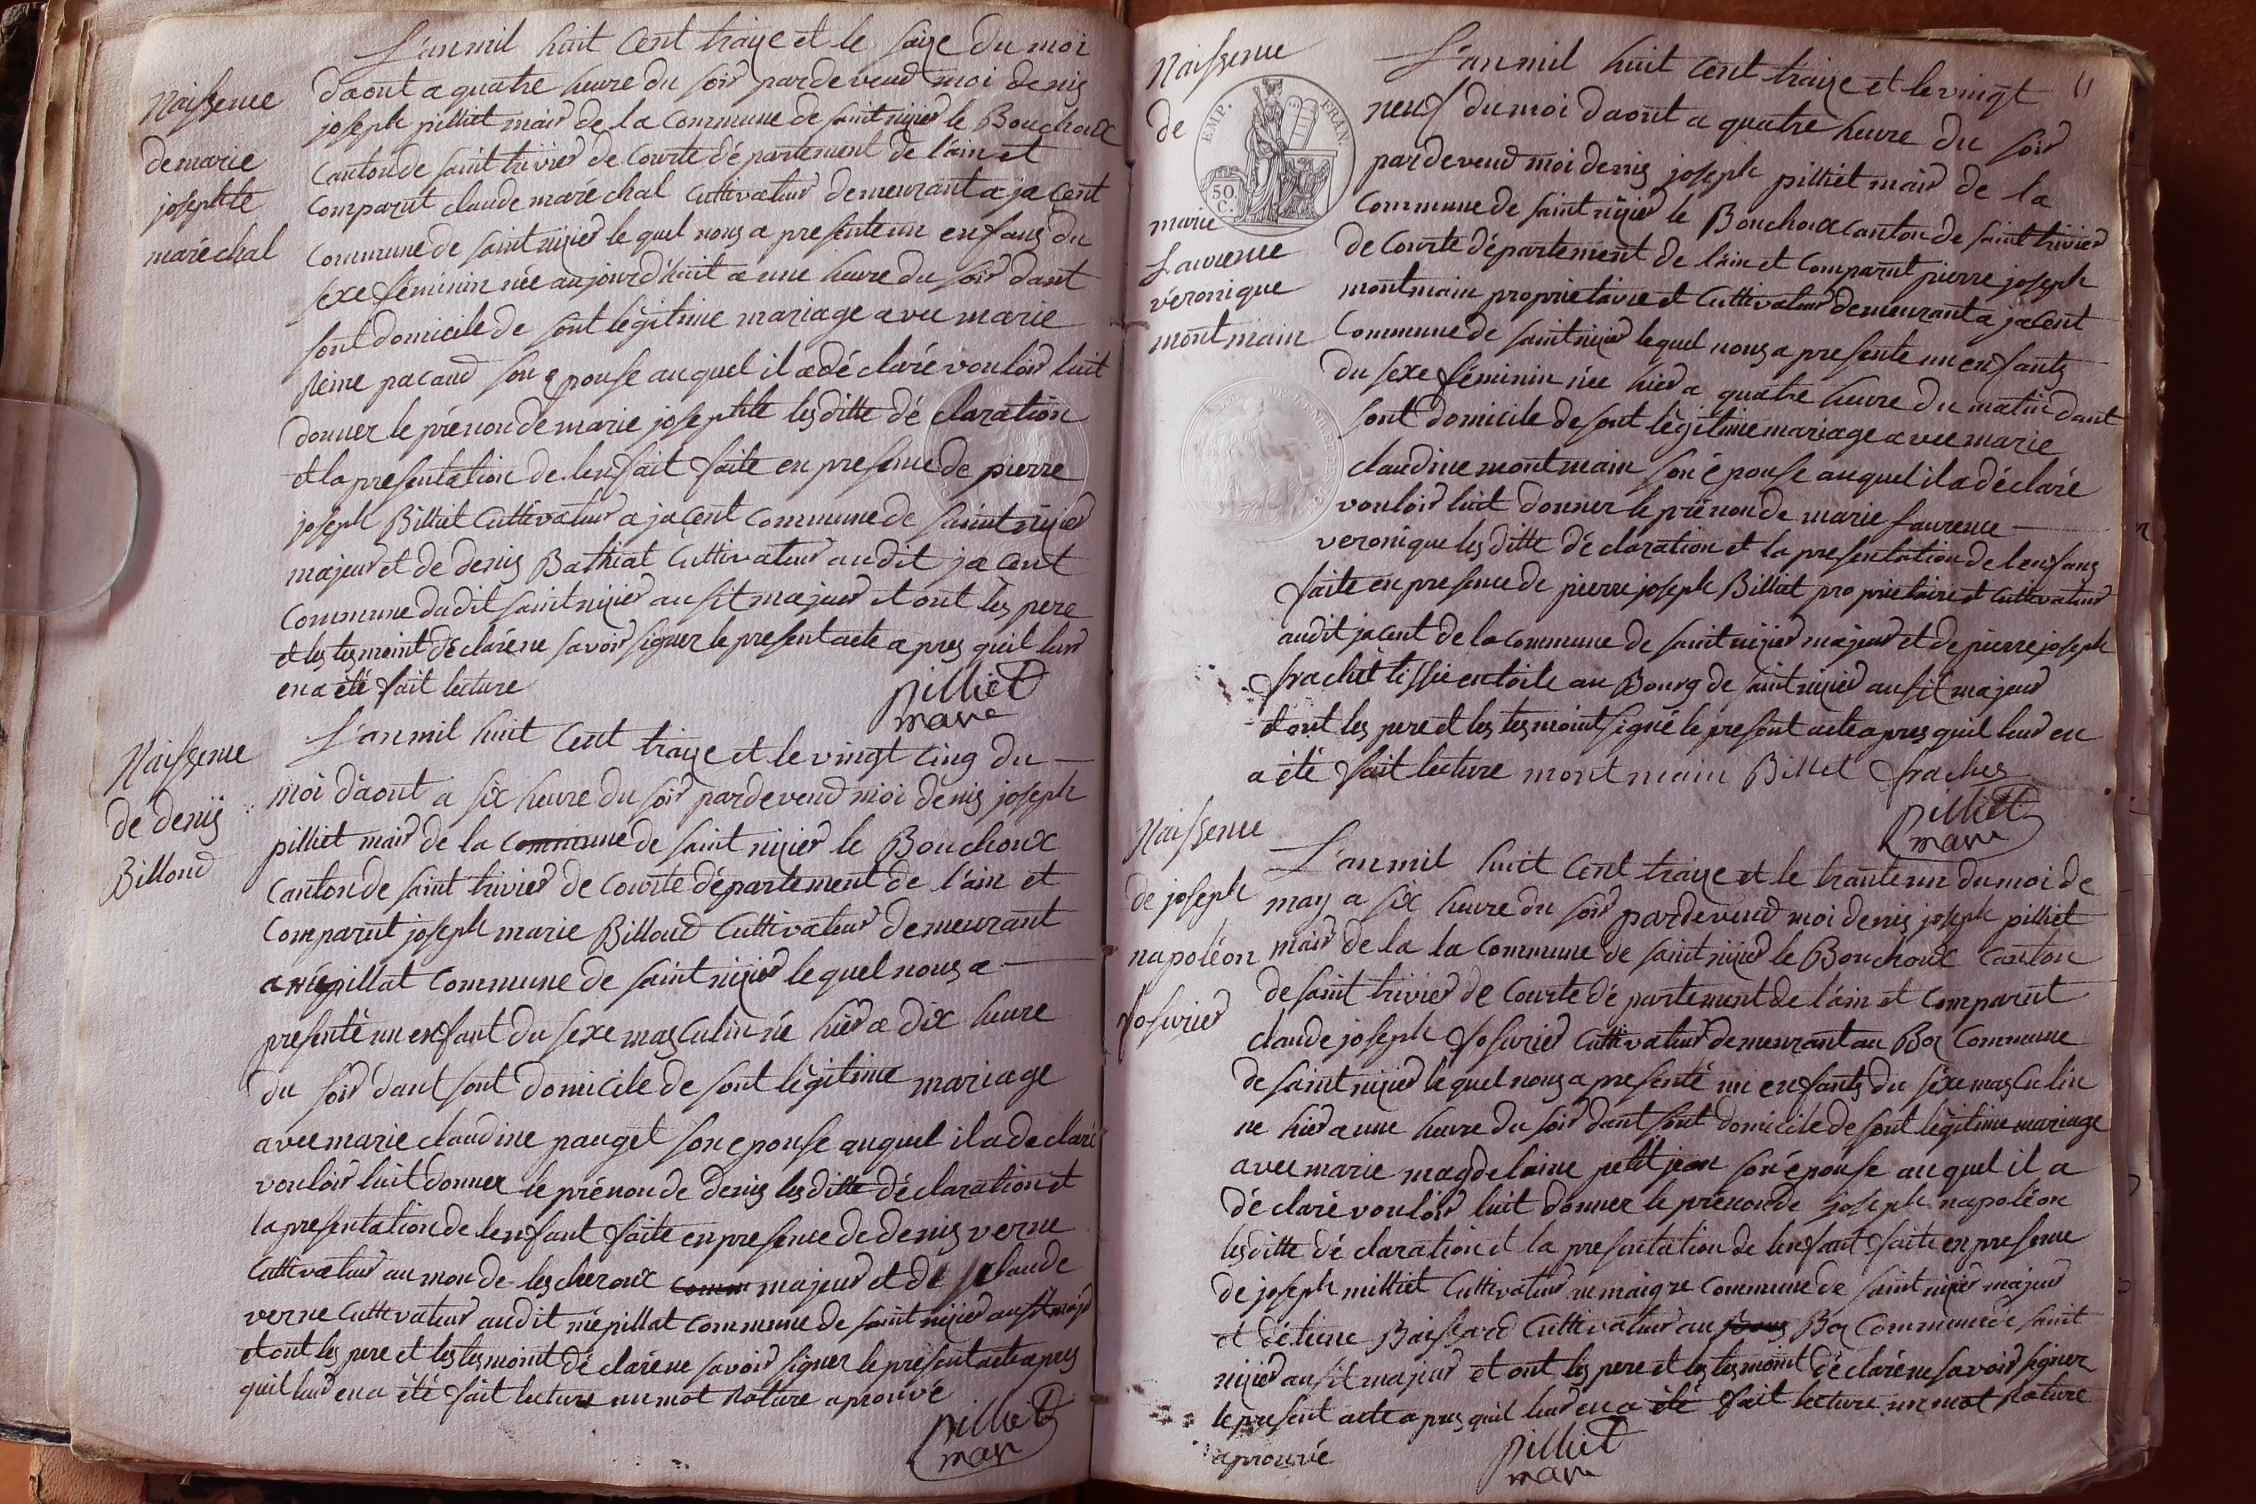 Naissence
de marie
josephte
maréchal
L'an mil huit cent traize et le saize du moi
daout a quatre heure du soir pardevend moi denis
joseph pilliet mair de la Commune de saint nizier le Bouchoux
Canton de saint trivier de Courte département de l'ain et
Comparut claude maréchal Cultivateur demeurant a jacent
Commune de saint nizier lequel nous a presente un enfans du
sexe féminin née aujourd'huit a une heure du soir dant
sont domicile de sont légitime mariage avec marie
Reine pacaud son epouse auquel il a déclaré vouloir luit
donner le prénon de marie josephte lesditte déclaration
et la presentation de lenfait faite en presence de pierre
joseph Billiet Cultivateur a jacent commune de saint nizier
majeur et de denis Bathiat Cultivateur audit jacent
Commune dudit saint nizier ausit majeur et ont les pere
et les tesmoint déclaré ne savoir signer le present acte apres quil leur
en a été fait lecture
pilliet
mair
Naissence
de denis
Billoud
L'an mil huit cent traize et le vingt cinq du
moi daout a six heure du soir pardevend moi denis joseph
pilliet mair de la Commune de saint nizier le Bouchoux
Canton de saint trivier de Courte département de l'ain et
Comparut joseph marie Billoud Cultivateur demeurant
a mépillat Commune de saint nizier lequel nous a
presenté un enfant du sexe masculin né hier a dix heure
du soir dant sont domicile de sont légitime mariage
avec marie claudine pauget son epouse auquel il a declaré
vouloir luit donner le prénon de denis lesditte déclaration et
la presentation de lenfant faite en presence de denis verne
Cultivateur au mon de lescheroux Comm majeur et de claude
verne Cultivateur audit mépillat Commune de saint nizier ausit majeur
et ont les pere et les tesmoint déclaré ne savoir signer le présent acte apres
quil leur en a été fait lecture un mot Rature aprouvé
pilliet
mair
11
Naissence
de
EMP. FRAN.
50 C.
marie
Laurence
véronique
montmain
L'an mil huit cent traize et le vingt
neuf du moi daout a quatre heure du soir
pardevend moi denis joseph pilliet mair de la
Commune de saint nizier le Bouchoux canton de saint trivier
de Courte département de l'ain et Comparut pierre joseph
montmain proprietaire et Cultivateur demeurant a jacent
Commune de saint nizier lequel nous a presente un enfants
du sexe féminin née hier a quatre heure du matin dant
sont domicile de sont légitime mariage avec marie
claudine montmain son épouse auquel il a déclaré
vouloir luit donner le prénon de marie Laurence
veronique lesditte déclaration et la presentation de lenfans
faite en presence de pierre joseph Billiet proprietaire et Cultivateur
audit jacent de la commune de saint nizier majeur et de pierre joseph
frachet tissie en toile au Bourg de saint nizier ausit majeur
et ont les pere et les tesmoint signé le présent acte apres quil leur en
a été fait lecture montmain Billiet frachet
pilliet
mair
Naissence
de joseph
napoléon
Josurier
L'an mil huit cent traize et le trante un du moi de
may a six heure du soir pardevend moi denis joseph pilliet
mair de la la Commune de saint nizier le Bouchoux Canton
de saint trivier de Courte département de l'ain et Comparut
claude joseph Josurier Cultivateur demeurant au Boz Commune
de saint nizier lequel nous a presenté un enfants du sexe masculin
ne hier a une heure du soir dant sont domicile de sont légitime mariage
avec marie magdelaine petit jean son épouse auquel il a
déclaré vouloir luit donner le prénon de joseph napoléon
lesditte déclaration et la presentation de lenfant faite en presence
de joseph milliet Cultivateur au maigre commune de saint nizier majeur
et détiene Baissard Cultivateur au Boz Commune de saint
nizier ausit majeur et ont les pere et les tesmoint déclaré ne savoir signer
le present acte apres quil leur en a été fait lecture un mot Rature
aprouvé
pilliet
mair